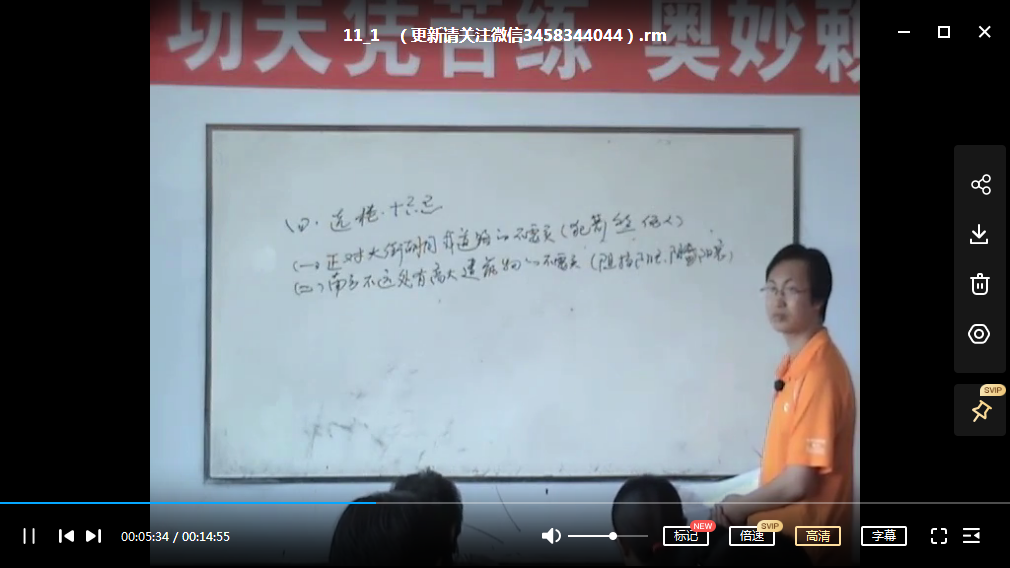 功夫凭苦练 奥妙赖
11_1 （更新请关注微信3458344044）.rm
四、选楼十忌
(一)正对大街胡同有道路的不要买(
(二)南方不远处有高大建筑物的不要买(阻挡阳光、阴盛阳衰)
SVIP
00:05:34 / 00:14:55
标记 NEW 倍速 SVIP 高清 字幕